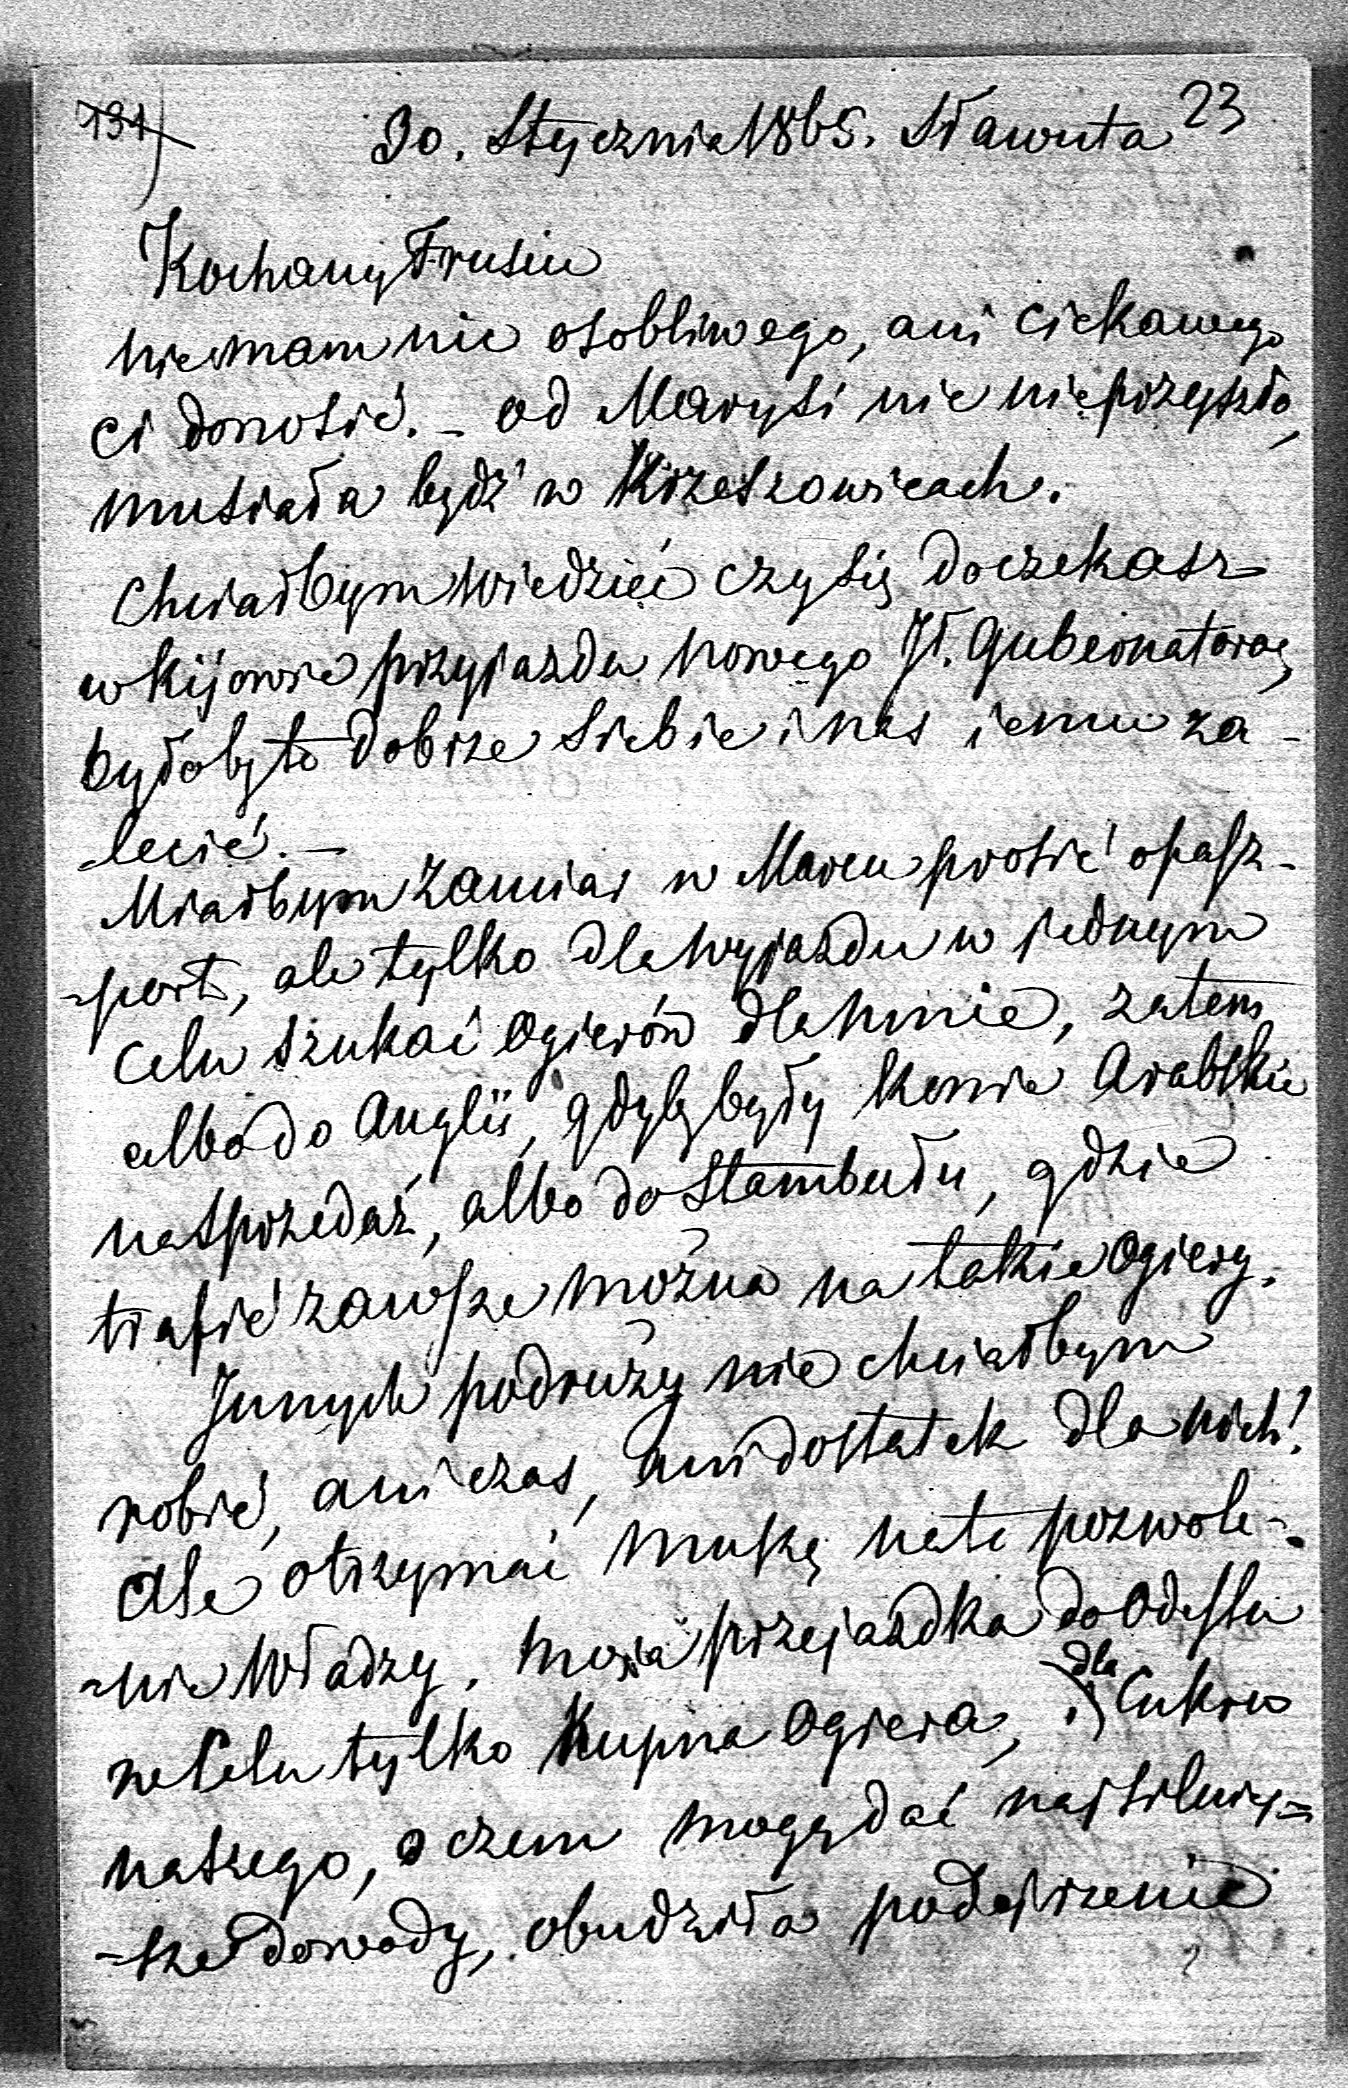 131) 30. Stycznia 1865. Sławuta 23
Kochany Frusiu
niemam nic osobliwego, ani ciekawego
ci donosić. - od Marysi nic nieprzyszło,
musiała bydź w Krzeszowicach.
Chciałbym wiedzieć czy się doczekasz
w Kijowie przyjazdu nowego Jł. Gubernatora,
byłoby to dobrze siebie i nas iemu za-
-lecić. -
Miałbym zamiar w Marcu prosić o pasz-
-port, ale tylko dla wyjazdu w jednym
celu szukać Ogierów dla mnie, zatem
albo do Anglii, gdyby były konie Arabskie
na sprzedaż, albo do Stambułu, gdzie
trafić zawsze można na takie Ogiery.
Innych podruży nie chciałbym
robić, ani czas, ani dostatek dla nich!
Ale otrzymać muszę na to pozwole-
-nie Władzy. moia przejazdka do Odessu
w Celu tylko Kupna Ogiera, i dla Cukru
naszego, o czem mogę dać najsilniej-
-sze dowody, obudziła podejrzenie